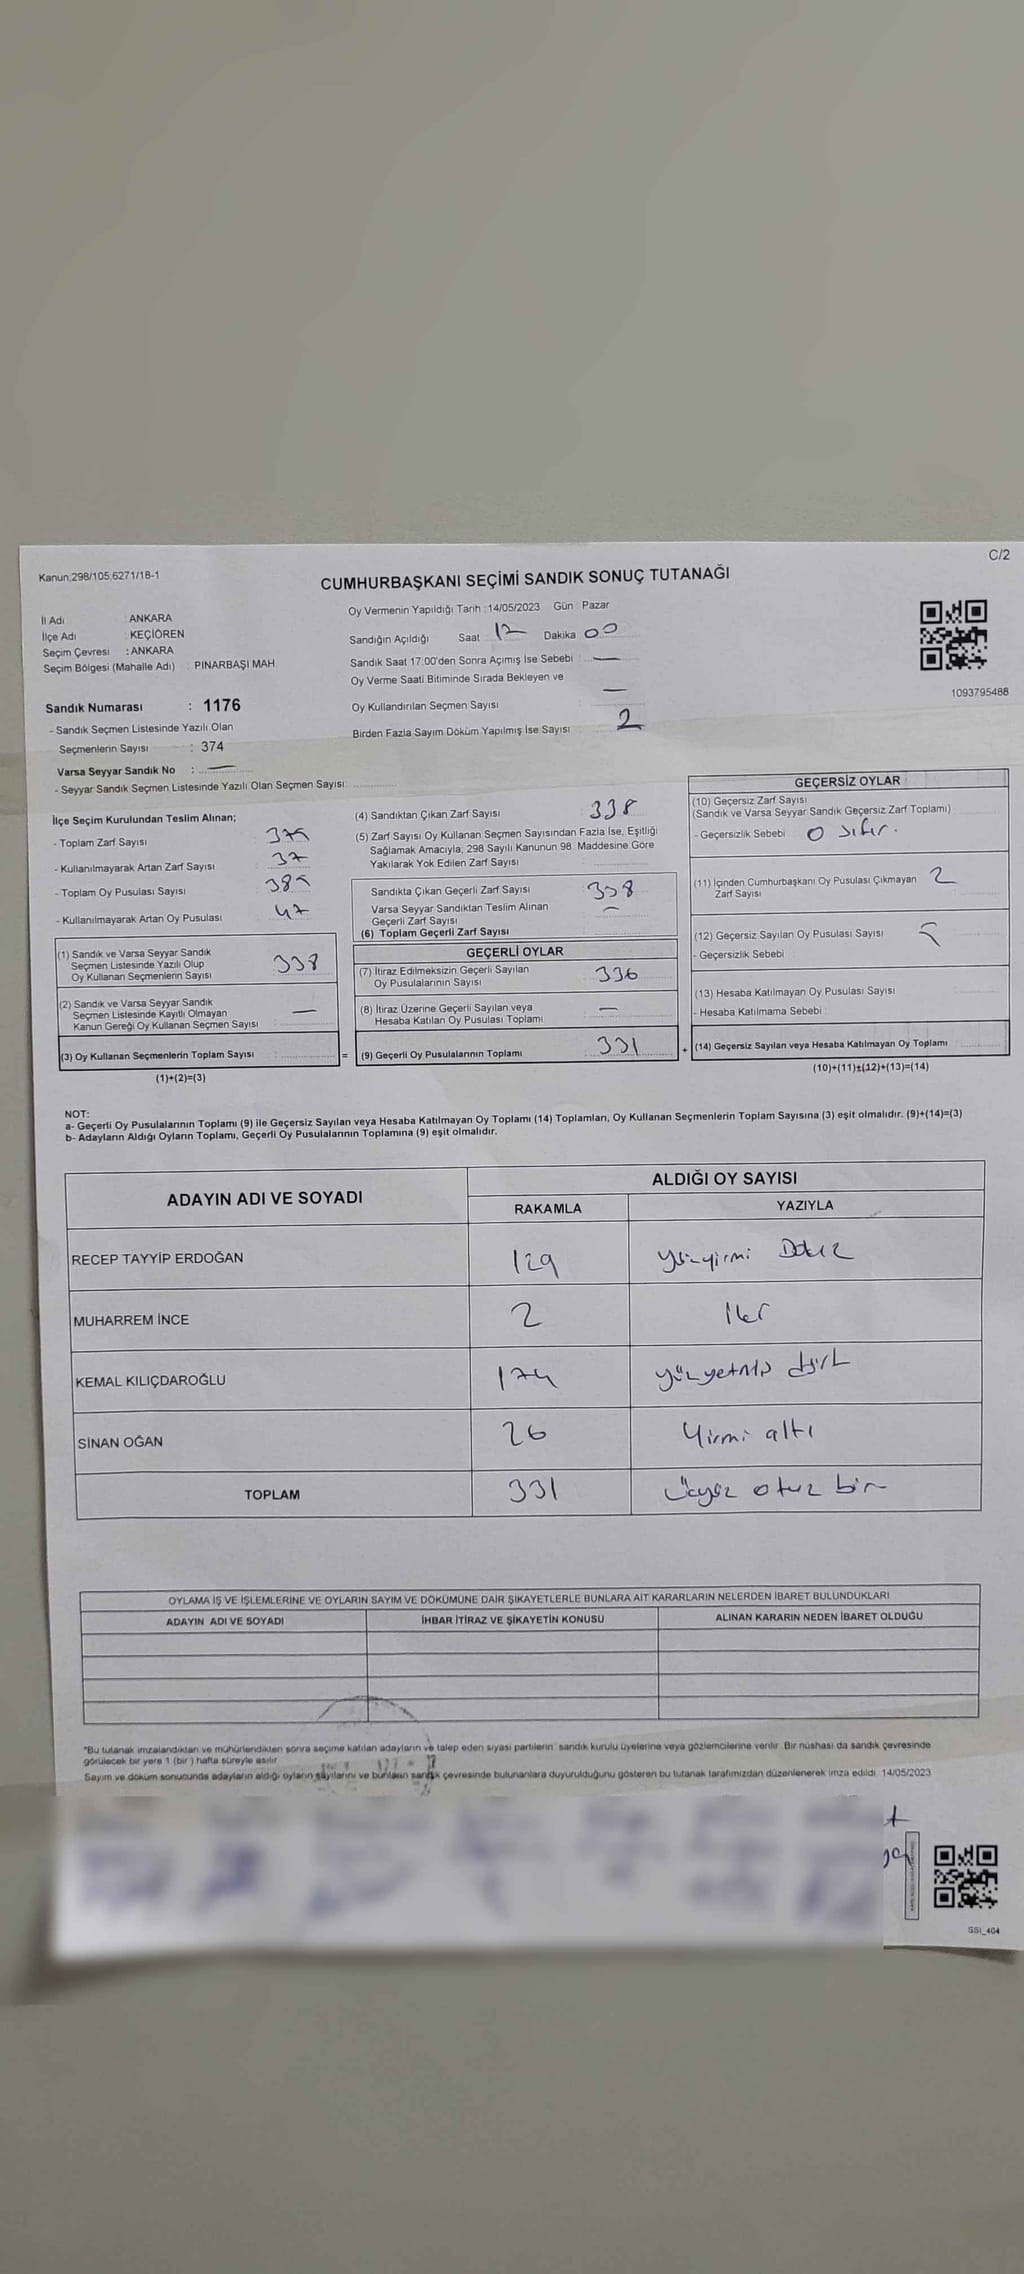 C/2
Kanun;298/105,6271/18-1
CUMHURBAŞKANI SEÇİMİ SANDIK SONUÇ TUTANAĞI
İl Adı : ANKARA
İlçe Adı : KEÇİÖREN
Seçim Çevresi : ANKARA
Seçim Bölgesi (Mahalle Adı) : PINARBAŞI MAH.
Oy Vermenin Yapıldığı Tarih :14/05/2023 Gün : Pazar
Sandığın Açıldığı Saat 17 Dakika 00
Sandık Saat 17:00'den Sonra Açımış İse Sebebi : —
Oy Verme Saati Bitiminde Sırada Bekleyen ve
Oy Kullandırılan Seçmen Sayısı : —
Birden Fazla Sayım Döküm Yapılmış İse Sayısı : 2
1093795488
Sandık Numarası : 1176
- Sandık Seçmen Listesinde Yazılı Olan
Seçmenlerin Sayısı : 374
Varsa Seyyar Sandık No : —
- Seyyar Sandık Seçmen Listesinde Yazılı Olan Seçmen Sayısı:
İlçe Seçim Kurulundan Teslim Alınan;
- Toplam Zarf Sayısı 375
- Kullanılmayarak Artan Zarf Sayısı 37
- Toplam Oy Pusulası Sayısı 385
- Kullanılmayarak Artan Oy Pusulası 47
(1) Sandık ve Varsa Seyyar Sandık
Seçmen Listesinde Yazılı Olup
Oy Kullanan Seçmenlerin Sayısı 338
(2) Sandık ve Varsa Seyyar Sandık
Seçmen Listesinde Kayıtlı Olmayan
Kanun Gereği Oy Kullanan Seçmen Sayısı —
(3) Oy Kullanan Seçmenlerin Toplam Sayısı =
(1)+(2)=(3)
(4) Sandıktan Çıkan Zarf Sayısı 338
(5) Zarf Sayısı Oy Kullanan Seçmen Sayısından Fazla İse, Eşitliği
Sağlamak Amacıyla; 298 Sayılı Kanunun 98. Maddesine Göre
Yakılarak Yok Edilen Zarf Sayısı
Sandıkta Çıkan Geçerli Zarf Sayısı 338
Varsa Seyyar Sandıktan Teslim Alınan
Geçerli Zarf Sayısı —
(6) Toplam Geçerli Zarf Sayısı
GEÇERLİ OYLAR
(7) İtiraz Edilmeksizin Geçerli Sayılan
Oy Pusulalarının Sayısı 336
(8) İtiraz Üzerine Geçerli Sayılan veya
Hesaba Katılan Oy Pusulası Toplamı —
(9) Geçerli Oy Pusulalarının Toplamı 331 +
GEÇERSİZ OYLAR
(10) Geçersiz Zarf Sayısı
(Sandık ve Varsa Seyyar Sandık Geçersiz Zarf Toplamı)
- Geçersizlik Sebebi 0 sıfır.
(11) İçinden Cumhurbaşkanı Oy Pusulası Çıkmayan 2
Zarf Sayısı
(12) Geçersiz Sayılan Oy Pusulası Sayısı 5
- Geçersizlik Sebebi
(13) Hesaba Katılmayan Oy Pusulası Sayısı
- Hesaba Katılmama Sebebi :
(14) Geçersiz Sayılan veya Hesaba Katılmayan Oy Toplamı
(10)+(11)+(12)+(13)=(14)
NOT:
a- Geçerli Oy Pusulalarının Toplamı (9) ile Geçersiz Sayılan veya Hesaba Katılmayan Oy Toplamı (14) Toplamları, Oy Kullanan Seçmenlerin Toplam Sayısına (3) eşit olmalıdır. (9)+(14)=(3)
b- Adayların Aldığı Oyların Toplamı, Geçerli Oy Pusulalarının Toplamına (9) eşit olmalıdır.
ADAYIN ADI VE SOYADI ALDIĞI OY SAYISI
RAKAMLA YAZIYLA
RECEP TAYYİP ERDOĞAN 129 Yüzyirmi Dokuz
MUHARREM İNCE 2 iki
KEMAL KILIÇDAROĞLU 174 yüzyetmiş dört
SİNAN OĞAN 26 Yirmi altı
TOPLAM 331 Üçyüz otuz bir
OYLAMA İŞ VE İŞLEMLERİNE VE OYLARIN SAYIM VE DÖKÜMÜNE DAİR ŞİKAYETLERLE BUNLARA AİT KARARLARIN NELERDEN İBARET BULUNDUKLARI
ADAYIN ADI VE SOYADI İHBAR İTİRAZ VE ŞİKAYETİN KONUSU ALINAN KARARIN NEDEN İBARET OLDUĞU
*Bu tutanak imzalandıktan ve mühürlendikten sonra seçime katılan adayların ve talep eden siyasi partilerin sandık kurulu üyelerine veya gözlemcilerine verilir. Bir nüshası da sandık çevresinde
görülecek bir yere 1 (bir) hafta süreyle asılır.
Sayım ve döküm sonucunda adayların aldığı oyların sayılarını ve bunların sandık çevresinde bulunanlara duyurulduğunu gösteren bu tutanak tarafımızdan düzenlenerek imza edildi. 14/05/2023
GSI_404